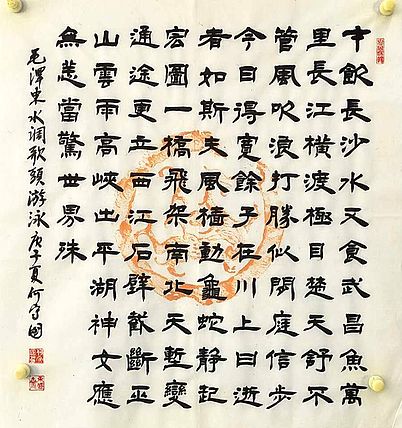 才飲長沙水又食武昌魚萬
里長江橫渡極目楚天舒不
管風吹浪打勝似閒庭信步
今日得寬餘子在川上曰逝
者如斯夫風檣動龜蛇靜起
宏圖一橋飛架南北天塹變
通途更立西江石壁截斷巫
山雲雨高峽出平湖神女應
無恙當驚世界殊
毛澤東水調歌頭游泳庚子夏何守國